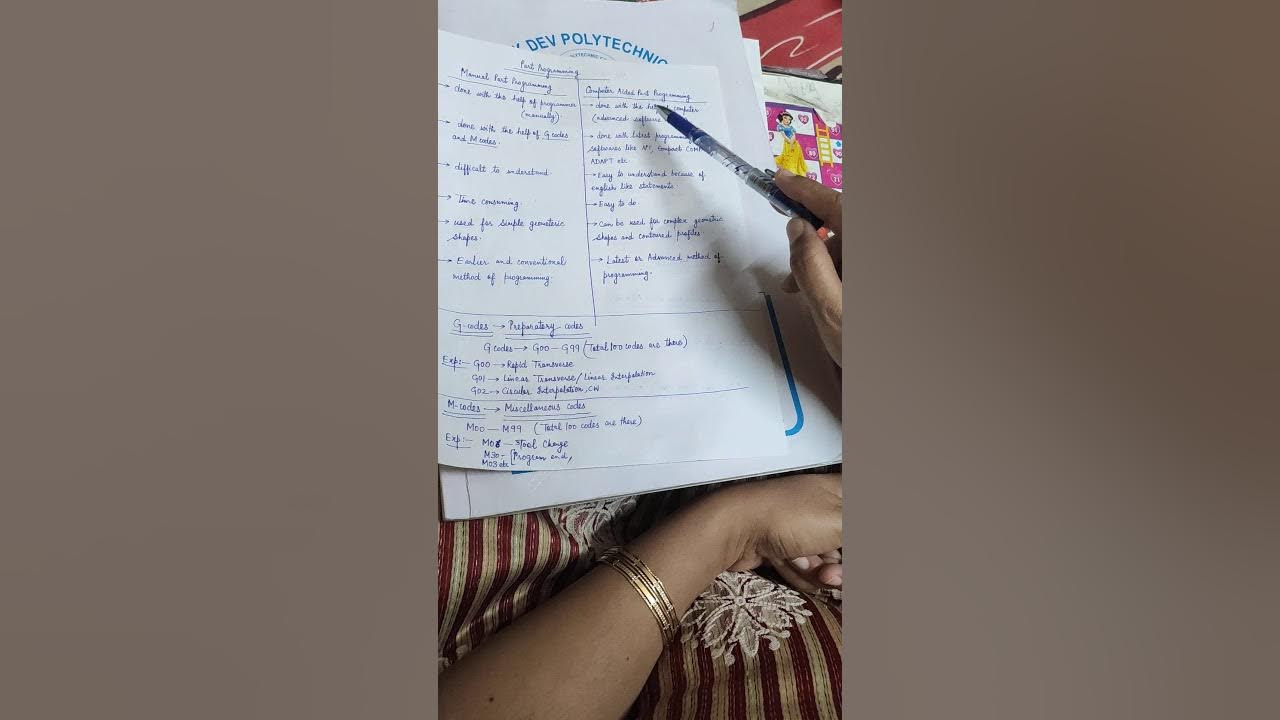 DEV POLYTECHNIC
Part Programming
Manual Part Programming
→ done with the help of programmer
(manually).
→ done with the help of G codes
and M codes.
→ difficult to understand.
→ Time consuming.
→ used for simple geometric
shapes.
→ Earlier and conventional
method of programming.
Computer Aided Part Programming
→ done with the help computer
(advanced software
→ done with latest programming
softwares like APT, Compact
ADAPT etc.
→ Easy to understand because of
english like statements.
→ Easy to do.
→ Can be used for complex geometric
shapes and contoured profiles.
→ Latest or Advanced method of
programming.
G-codes → Preparatory codes
G codes → G00 – G99 (Total 100 codes are there)
Exp:- G00 → Rapid Transverse
G01 → Linear Transverse/Linear Interpolation
G02 → Circular Interpolation, CW
M-codes → Miscellaneous codes
M00 – M99 (Total 100 codes are there)
Exp:- M06 – Tool Change
M30 – [Program end,
M03 etc